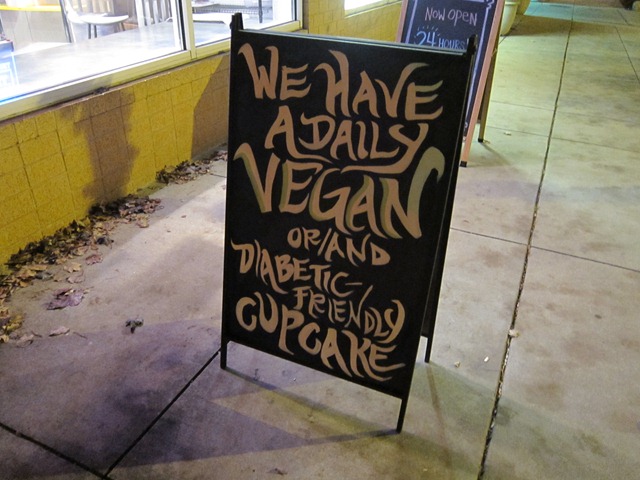 NOW OPEN
24 HOURS
WE HAVE
A DAILY
VEGAN
OR/AND
DIABETIC-
FRIENDLY
CUPCAKE